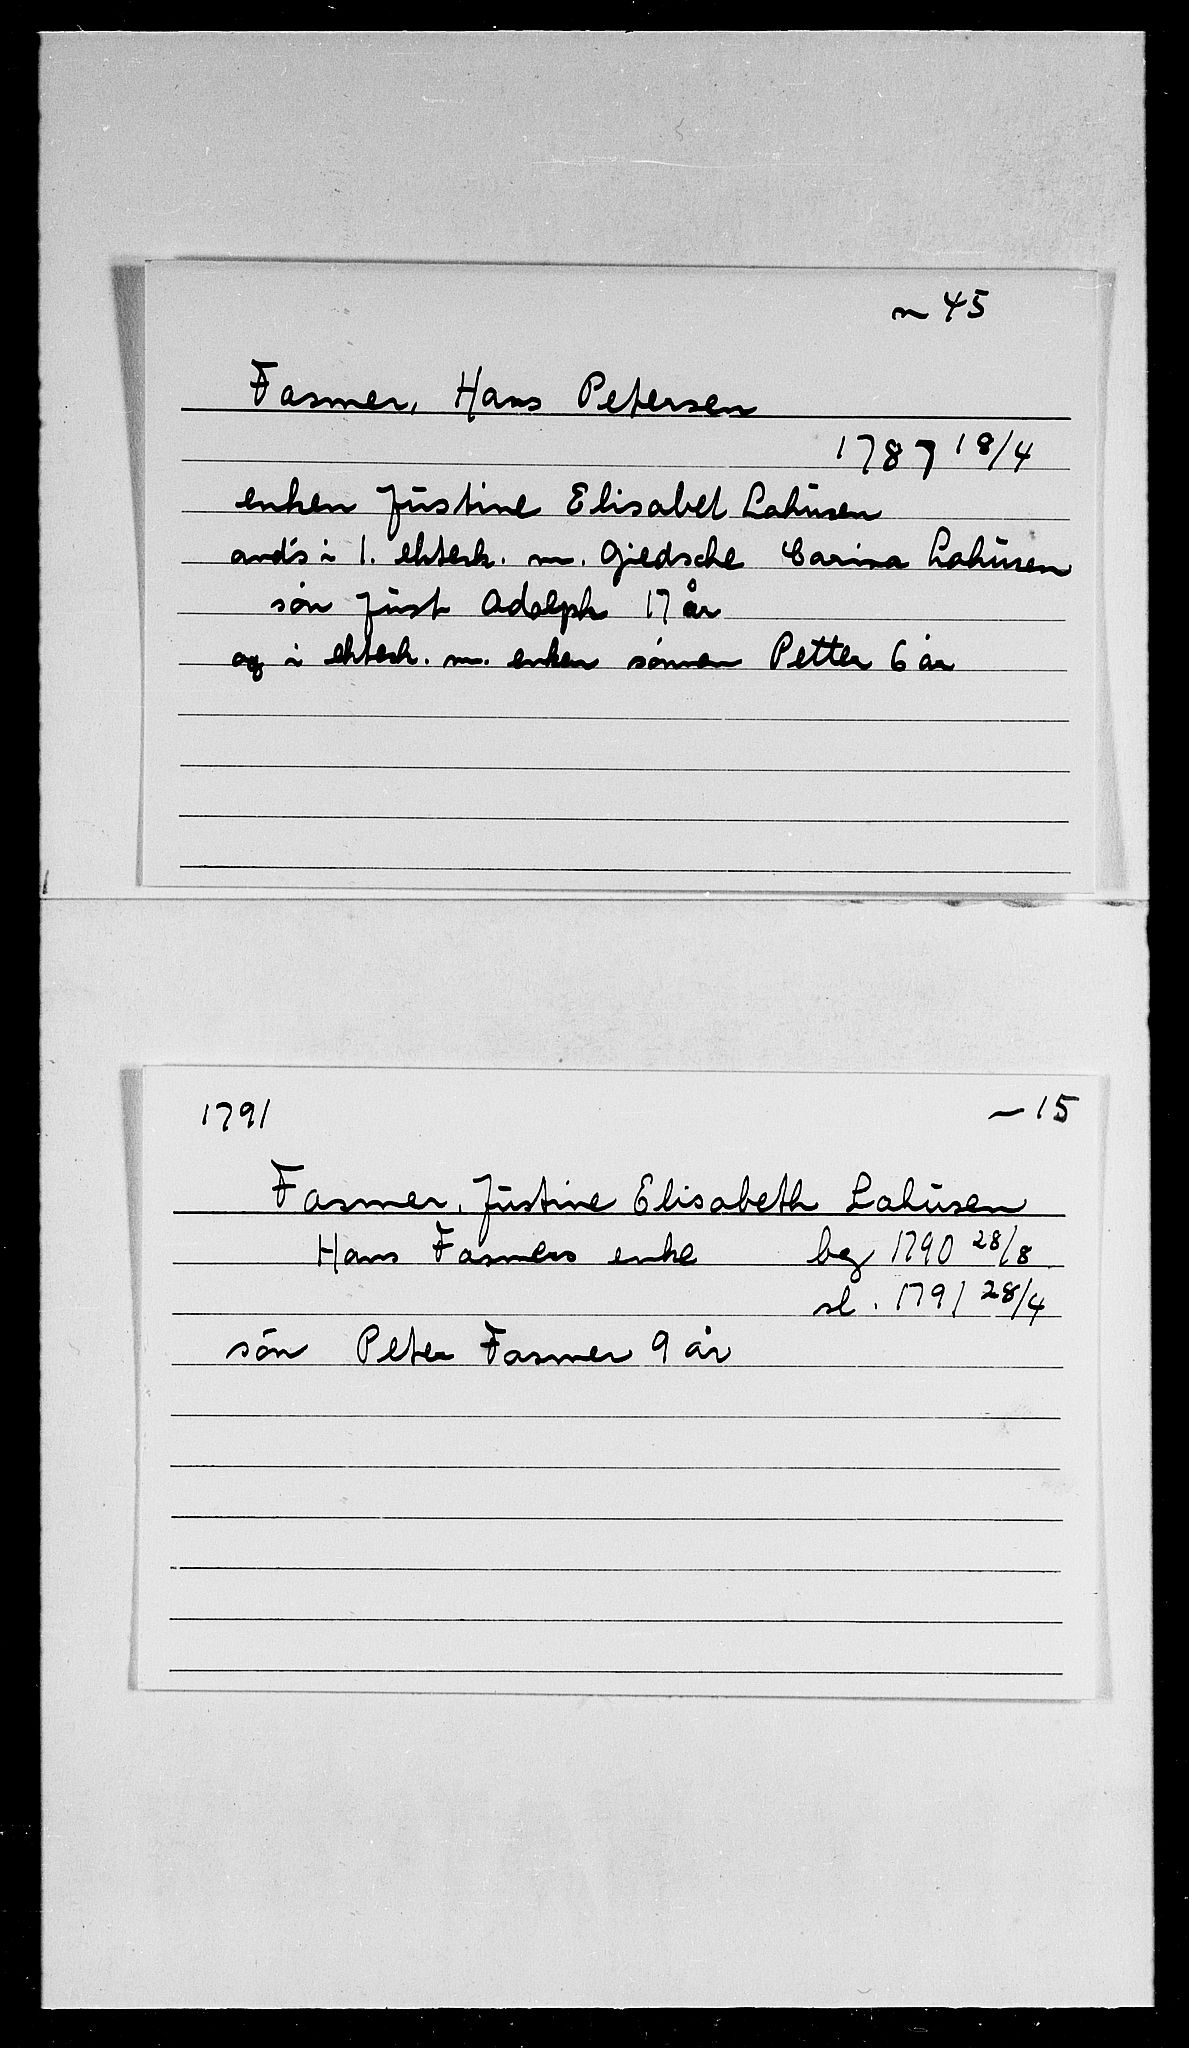 ~ 45
Fasmer, Hans Petersen
1787 18/4
enken Jŭstine Elisabet Lahŭsen
avd's i 1. ektesk. m. Giedsche Carina Lahŭsen
søn Jŭst Adolph 17 år
og i ektesk. m. enken sønnen Petter 6 år
1791 ~ 15
Fasmer, Jŭstine Elisabeth Lahŭsen
Hans Fasmers enke beg 1790 28/8
sl. 1791 28/4
søn Peter Fasmer 9 år